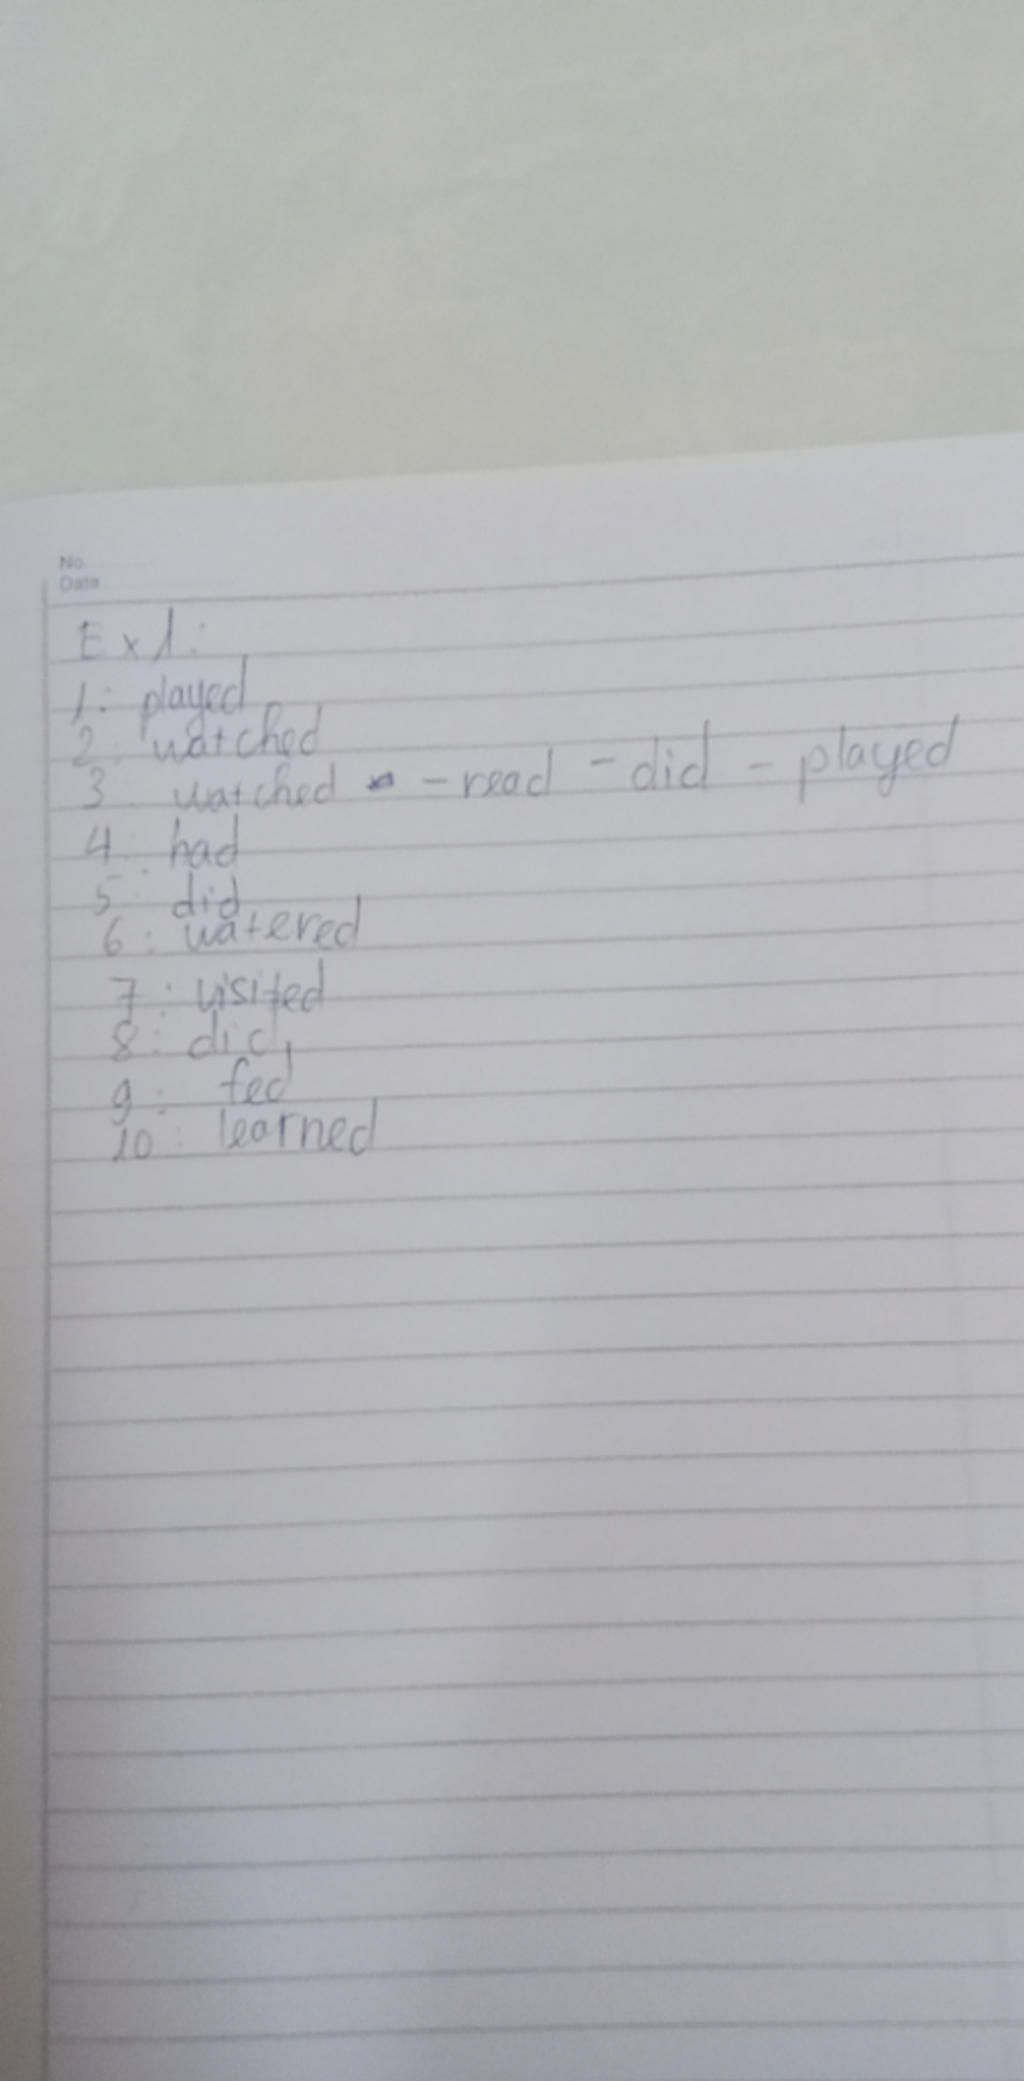 No.
Date
Ex1:
1: played
2: watched
3: watched - read - did - played
4: had
5: did
6: watered
7: visited
8: did
9: fed
10: learned